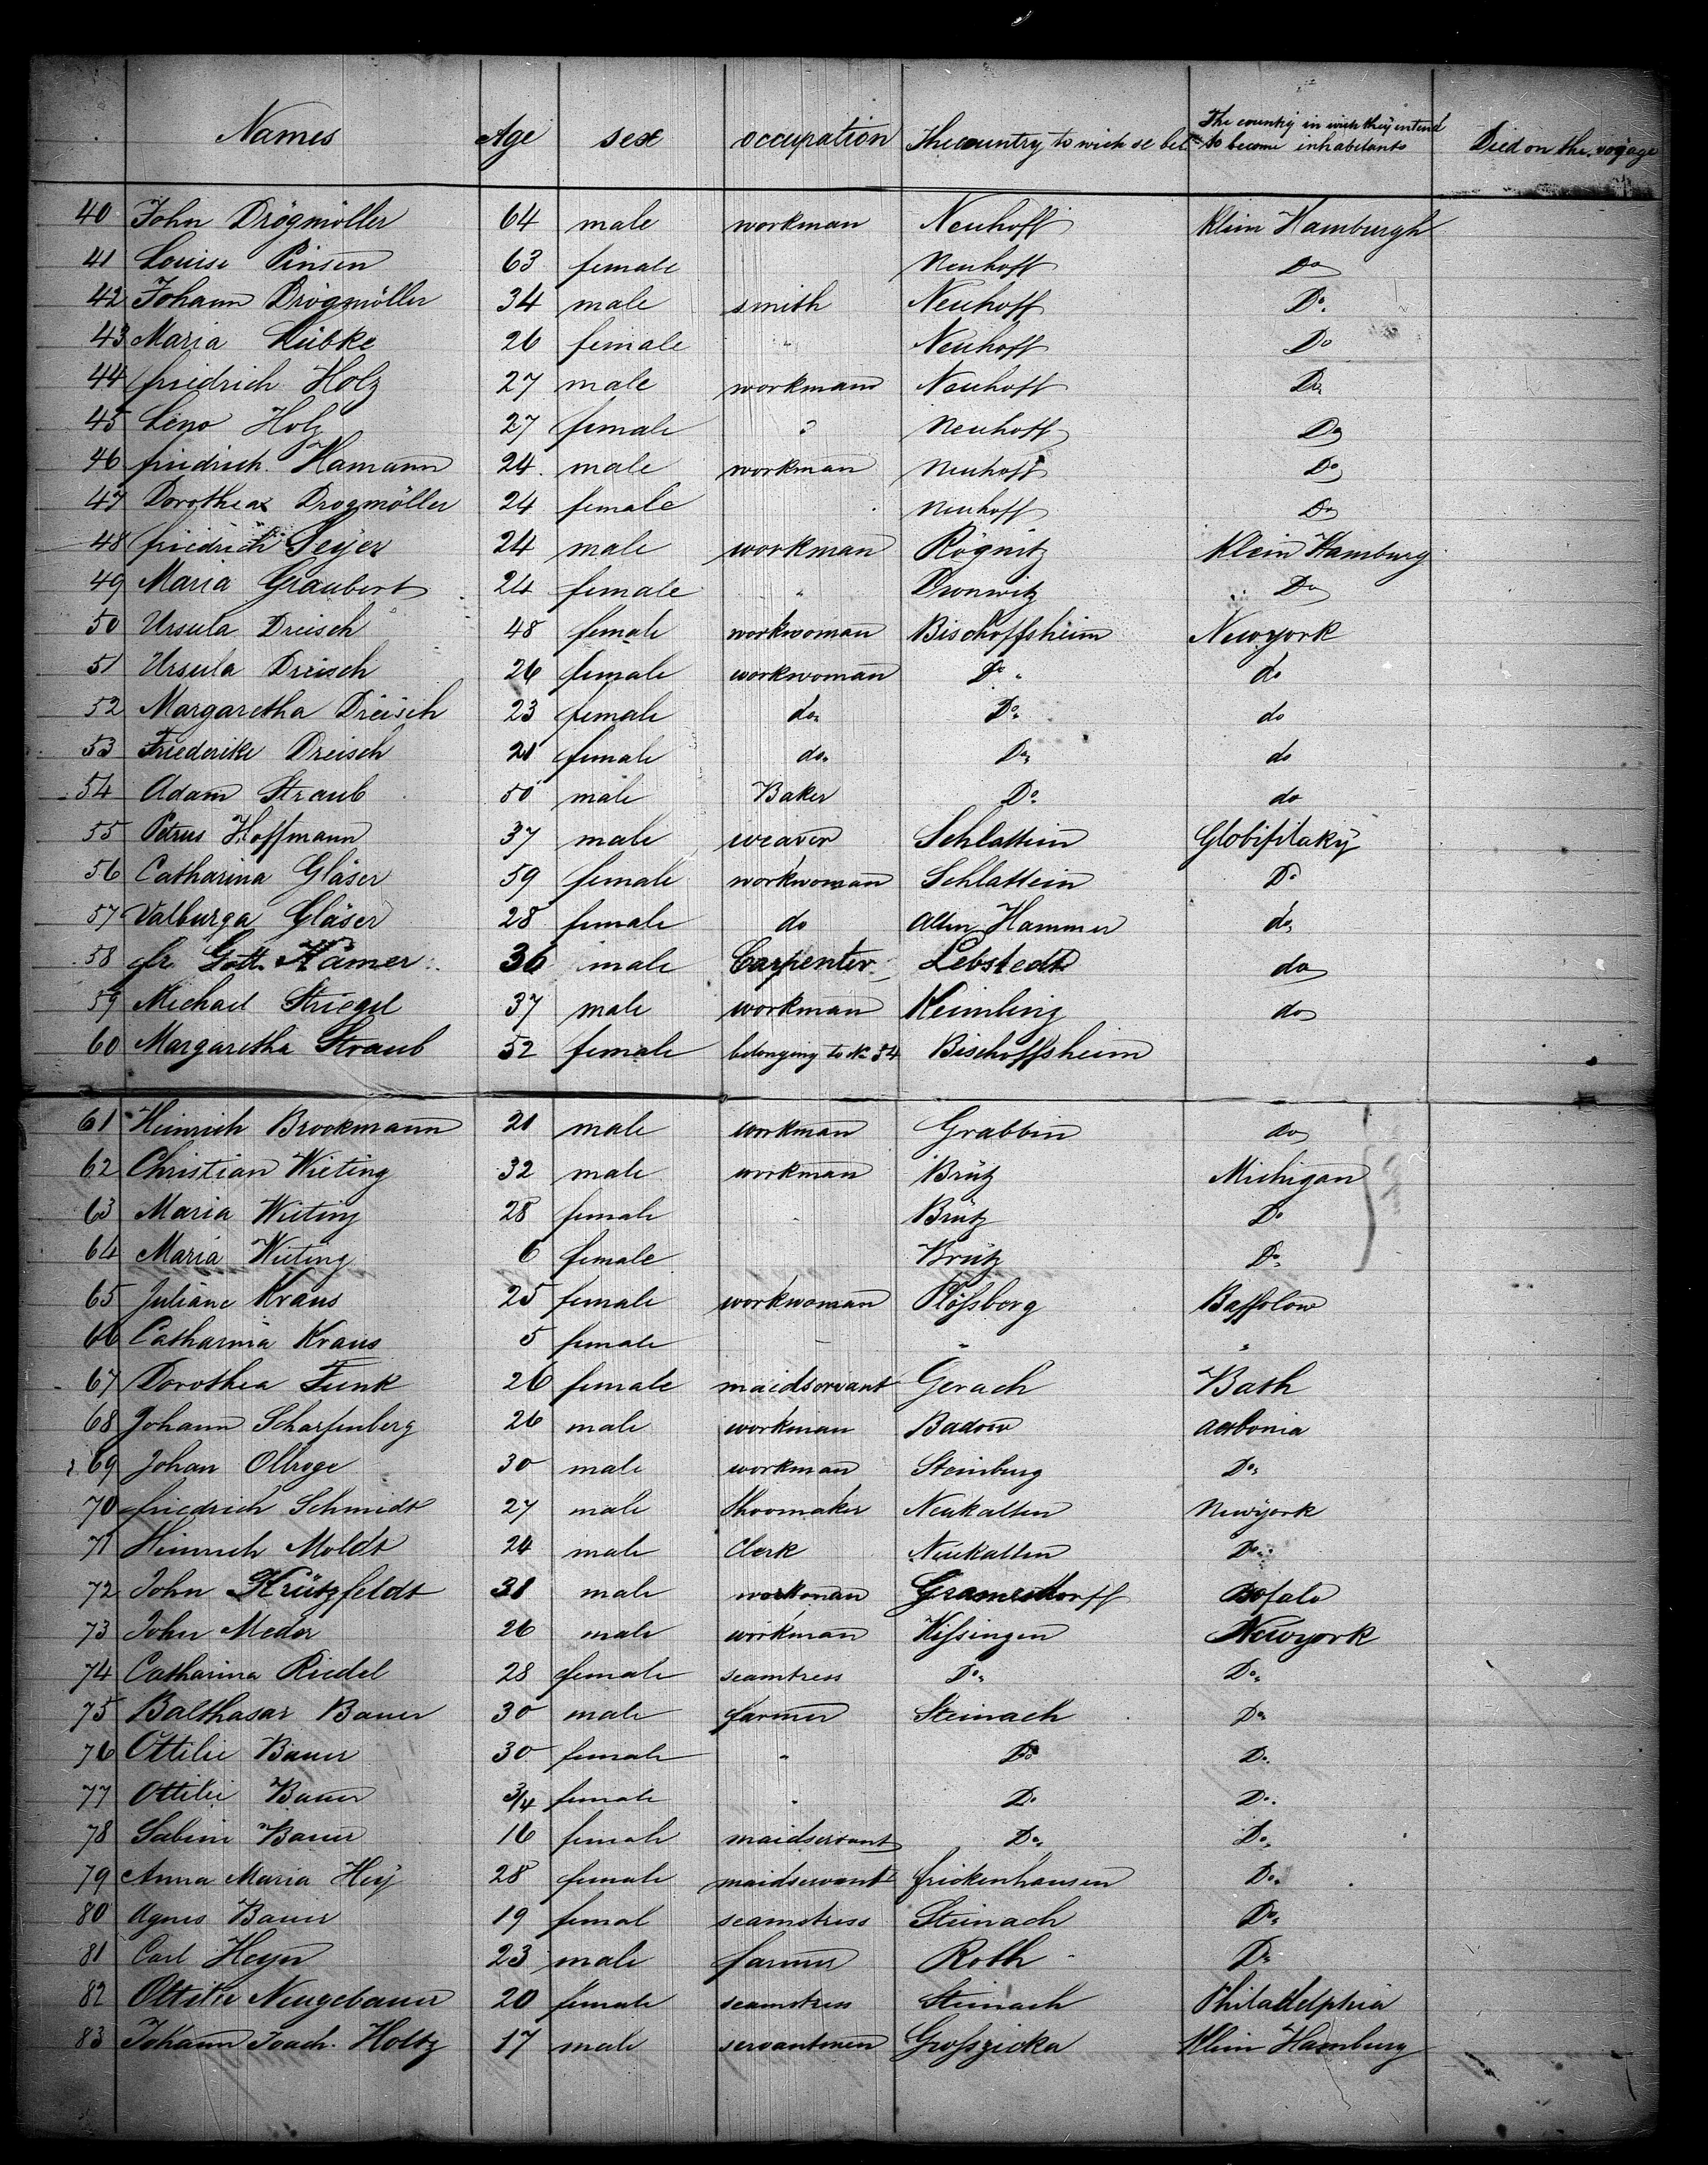 Names Age sex occupation The country to wich se bel= The country in wich they intend to become inhabitants Died on the voyage
40 John Drögmöller 64 male workman Neuhoff Klein Hamburgh
41 Louise Pinsen 63 female Neuhoff Do
42 Johann Drögmöller 34 male smith Neuhoff Do
43 Maria Lübke 26 female " Neuhoff Do
44 friedrich Holz 27 male workmann Neuhoff Do
45 Leno Holz 27 female " Neuhoff Do
46 friedrich Hamann 24 male workman Neuhoff Do
47 Dorothea Drogmöller 24 female Neuhoff Do
48 friedrich Seyer 24 male workman Rögnitz Klein Hamburg
49 Maria Graubert 24 female " Dronwitz Do
50 Ursula Dreisch 48 female workwoman Bischoffsheim Newyork
51 Ursula Dreisch 26 female workwoman Do do
52 Margaretha Dreisch 23 female do Do do
53 Friederike Dreisch 21 female do Do do
54 Adam Straub 50 male Baker Do do
55 Petrus Hoffmann 37 male weaver Schlattein Globifilaky
56 Catharina Gläser 59 female workwoman Schlattein Do
57 Valburga Gläser 28 female do Alten Hammer do
58 fr. Gott. Kämer 36 male Carpenter Lebstedt do
59 Michael Striegel 37 male workman Keimling do
60 Margaretha Straub 52 female belonging to No 54 Bischoffsheim
61 Heinrich Brockmann 21 male workman Grabbin do
62 Christian Wieting 32 male workman Brütz Michigan
63 Maria Wieting 28 female Brütz Do
64 Maria Wieting 6 female Brütz Do
65 Juliane Kraus 25 female workwoman Plößberg Baffolow
66 Catharina Kraus 5 female " "
67 Dorothea Funk 26 female maidservant Gerach Bath
68 Johann Scharfenberg 26 male workman Badow
69 Johan Ollroge 30 male workman Steinburg Do
70 friedrich Schmidt 27 male Shoomaker Neukalten Newyork
71 Heinrich Moldt 24 male Clerk Neukalten Do
72 John Krützfeldt 31 male workman Gramsdorff Bofalo
73 John Meder 26 male workman Kissingen Newyork
74 Catharina Riedel 28 female seamtress Do Do
75 Balthasar Bauer 30 male farmer Steinach Do
76 Ottilie Bauer 30 female " Do Do
77 Ottilie Bauer 3/4 female " Do Do
78 Sabine Bauer 16 female maidservant Do Do
79 Anna Maria Hey 28 female maidservant frickenhausen Do
80 Agnes Bauer 19 femal seamstress Steinach Do
81 Carl Heyn 23 male farmer Roth Do
82 Ottilie Neugebauer 20 female seamstress Steinach Philadelphia
83 Johann Joach. Holtz 17 male servantmen Großzicka Klein Hamburg